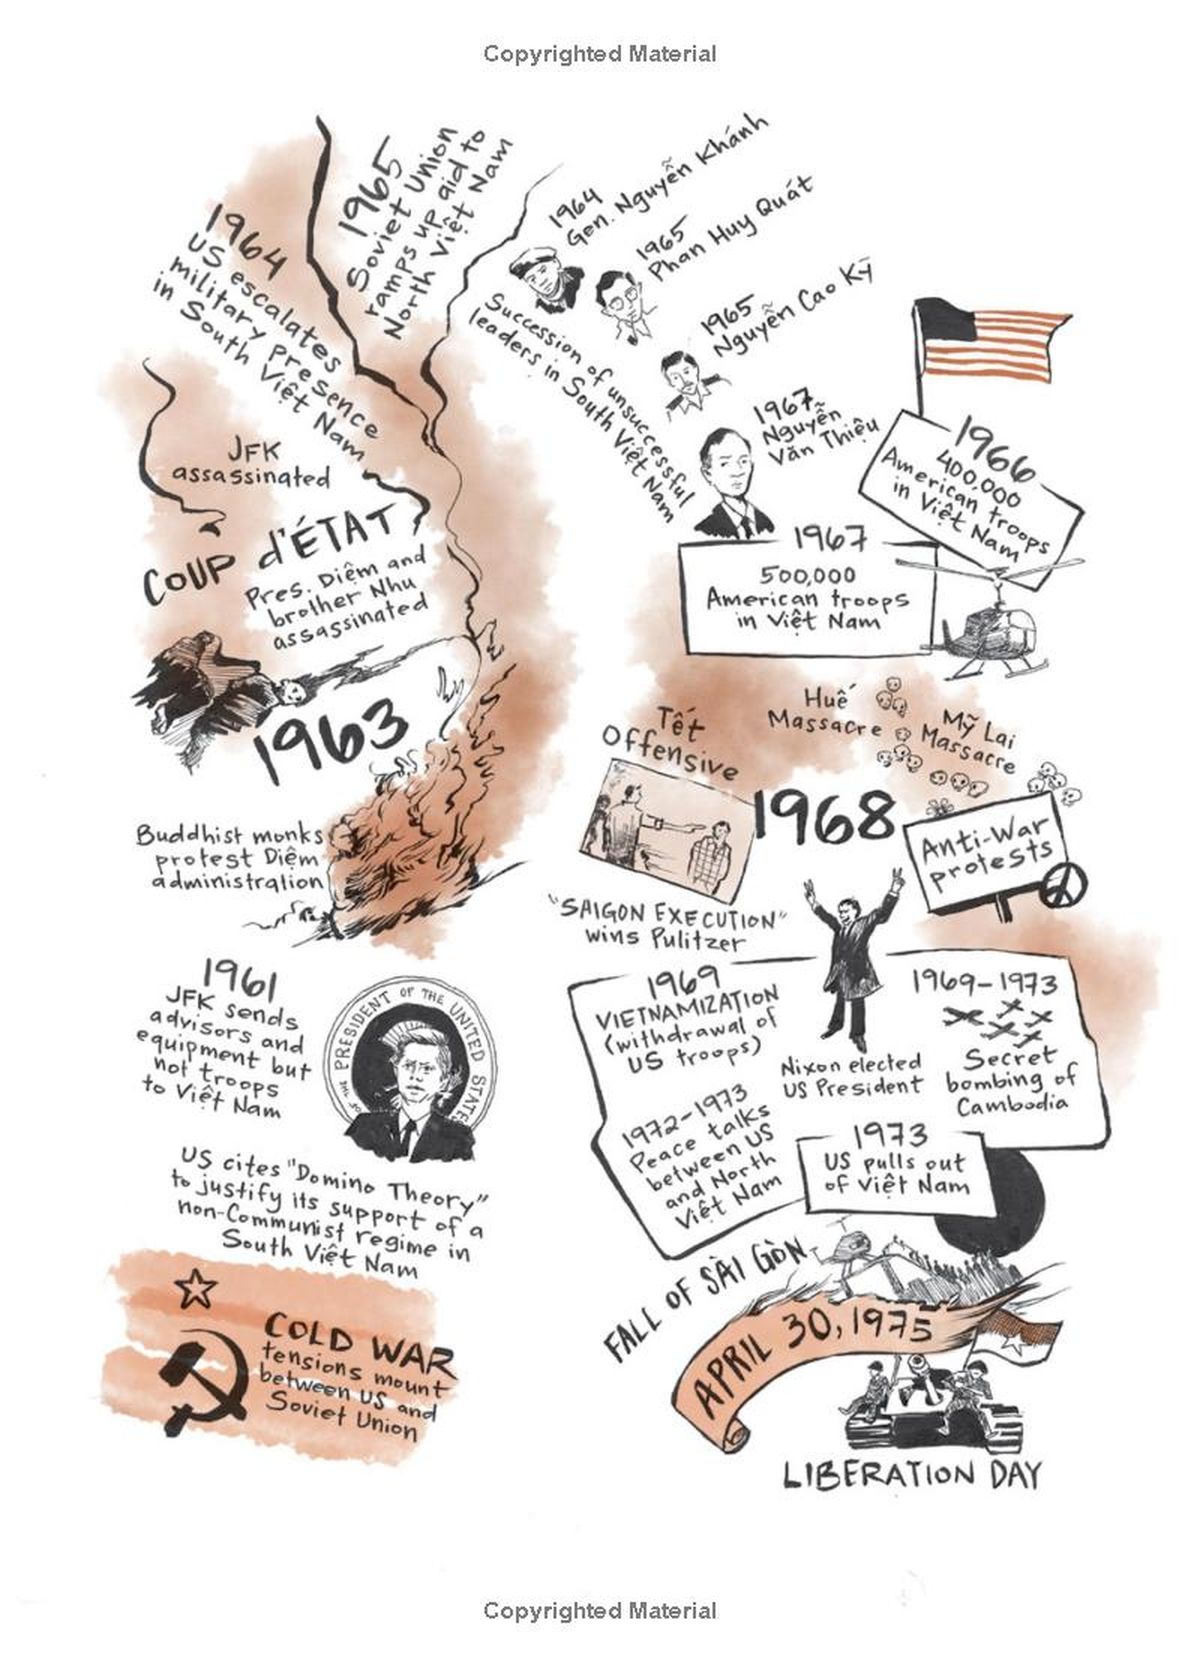 Copyrighted Material
COLD WAR
tensions mount
between US and
Soviet Union
US cites "Domino Theory"
to justify its support of a
non-Communist regime in
South Việt Nam
1961
JFK sends
advisors and
equipment but
not troops
to Việt Nam
PRESIDENT OF THE UNITED STATES
OF THE
Buddhist monks
protest Diệm
administration
1963
COUP d'ÉTAT
Pres. Diệm and
brother Nhu
assassinated
JFK
assassinated
1964
US escalates
military presence
in South Việt Nam
1965
Soviet Union
ramps up aid to
North Việt Nam
Succession of unsuccessful
leaders in South Việt Nam
1964
Gen. Nguyễn Khánh
1965
Phan Huy Quát
1965
Nguyễn Cao Kỳ
1967
Nguyễn
Văn Thiệu
1966
400,000
American troops
in Việt Nam
1967
500,000
American troops
in Việt Nam
Tết
Offensive
Huế
Massacre
Mỹ Lai
Massacre
1968
Anti-War
protests
"SAIGON EXECUTION"
wins Pulitzer
Nixon elected
US President
1969
VIETNAMIZATION
(withdrawal of
US troops)
1969-1973
Secret
bombing of
Cambodia
1972-1973
Peace talks
between US
and North
Việt Nam
1973
US pulls out
of Việt Nam
FALL OF SÀI GÒN
APRIL 30, 1975
LIBERATION DAY
Copyrighted Material